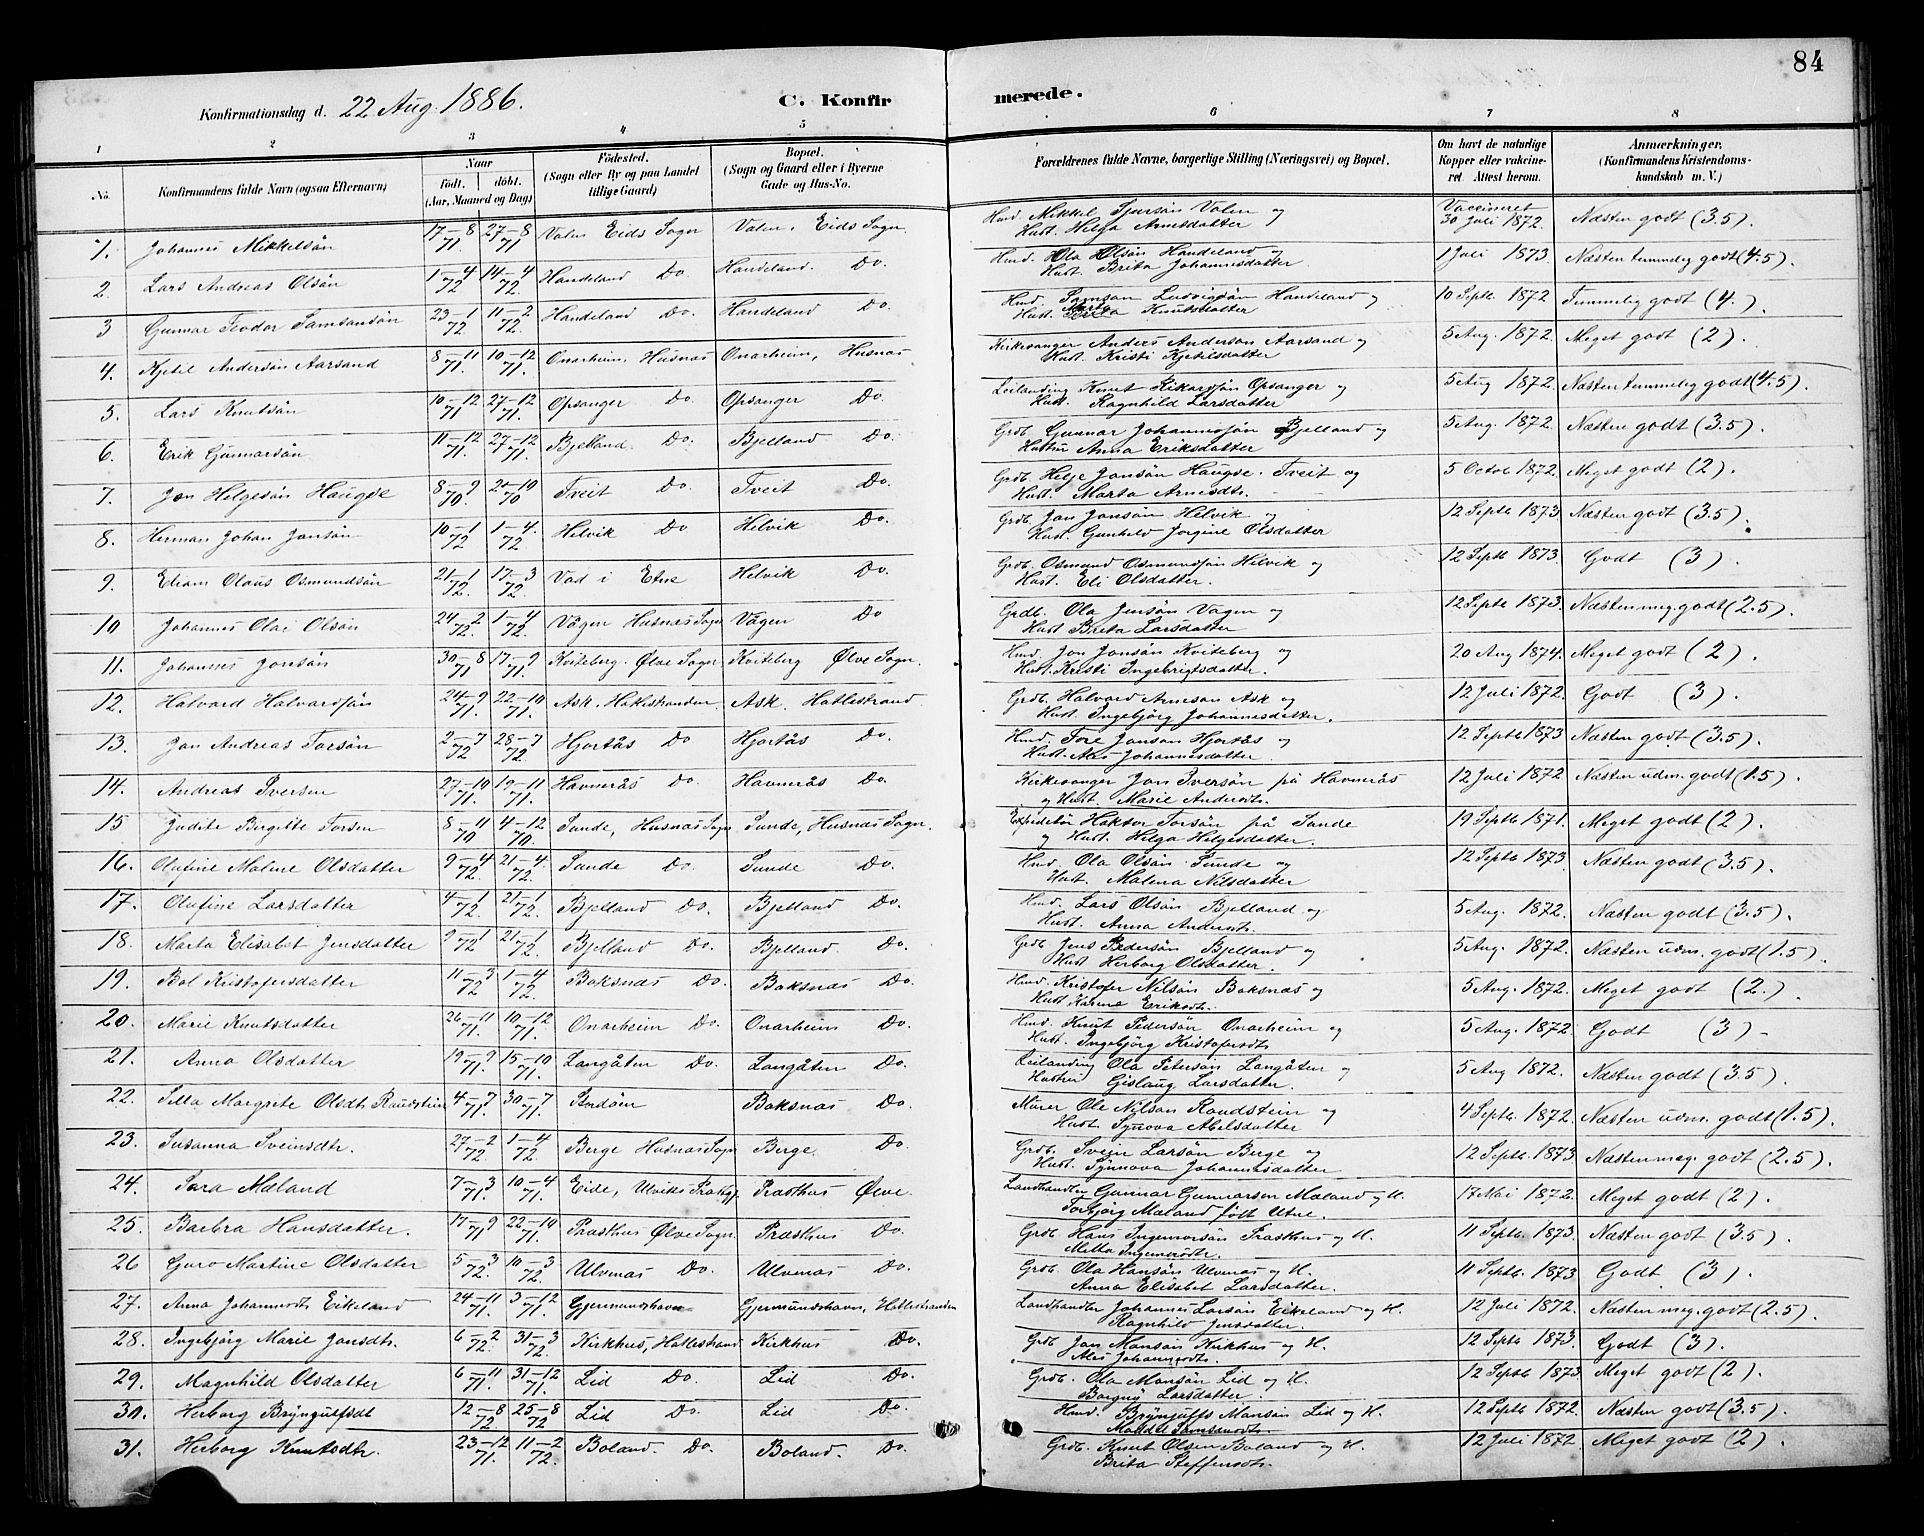 84
Konfirmationsdag d. 22 Aug 1886.
C. Konfirmerede.
1 2 3 4 5 6 7 8
No. Konfirmandens fulde Navn (ogsaa Efternavn) Naar Født. døbt. (Aar, Maaned og Dag) Fødested. (Sogn eller By og paa Landet tillige Gaard) Bopæl. (Sogn og Gaard eller i Byerne Gade og Hus-No. Forældrenes fulde Navne, borgerlige Stilling (Næringsvei) og Bopæl. Om havt de naturlige Kopper eller vakcineret. Attest herom. Anmærkninger. (Konfirmandens Kristendomskundskab m. V.)
1. Johannes Mikkelsön 17-8 71. 27-8 71. Valen Eids Sogn Valen, Eids Sogn. Hmd. Mikkel Sjursön Valen og Hust. Helga Arnesdatter Vaccineret 30 Juli 1872. Næsten godt (3.5).
2. Lars Andreas Olsön 1-4 72 14-4 72. Handeland Do. Handeland. Do. Hmd. Ola Olsön Handeland og Hust. Brita Johannesdatter 1 Juli 1873 Næsten temmelig godt (4.5).
3 Gunnar Teodor Samsonsön 23-1 72 11-2 72. Handeland Do. Handeland Do. Hmd. Samson Ludvigsön Handeland og Hust. Knutsdatter 10 Septb. 1872 Temmelig godt (4.)
4. Kjetil Andersön Aarsand 8-11 71. 10-12 71. Onarheim, Husnæs Onarheim, Husnæs Kirkesanger Anders Anderson Aarsand og Hust. Kristi Kjetilsdatter 5 Aug. 1872. Meget godt (2).
5. Lars Knutsön 10-12 71 27-12 71. Opsanger Do. Opsanger Do. Leilænding Knut Rikardsön Opsanger og Hust. Ragnhild Larsdatter 5 Aug 1872. Næsten temmelig godt (4.5)
6. Erik Gunnarsön 11-12 71 27-12 71. Bjelland Do. Bjelland Do. Grdb. Gunnar Johannesön Bjelland og Hustru Anna Eriksdatter 5 Aug. 1872. Næsten godt (3.5).
7. Jon Helgesön Haugse 8-9 70 2-10 70 Tveit Do. Tveit Do. Grdb. Helje Jonsön Haugse. Tveit og Hust. Marta Arnesdtr. 5 Octob 1872. Meget godt (2).
8. Herman Johan Jonsön 10-1 72 1-4 72 Helvik Do Helvik Do. Grdb. Jon Jonsön Helvik og Hust. Gunhild Jorgine Olsdatter 12 Septb 1873 Næsten godt (3.5).
9. Eliam Olaus Osmundsön 21-1 72. 17-3 72. Vad i Etne Helvik Do. Grdb. Osmund Osmundsön Helvik og Hust. Eli Olsdatter. 12 Septb 1873. Godt (3)
10 Johannes Olai Olsön 24-2 72. 1-4 72. Vågen Husnæs Sogn Vågen Do Grdb. Ola Jensön Vågen og Hust Brita Larsdatter 12 Septb 1873. Næsten meg. godt (2.5).
11. Johannes Jonsön 30-8 71 17-9 71. Kviteberg. Ölve Sogn Kviteberg Ölve Sogn. Hmd. Jon Jonsön Kviteberg og Hust. Kristi Ingebrigtsdatter. 20 Aug 1874. Meget godt (2).
12. Halvard Halvardsön 24-9 71. 22-10 71. Ask. Hatlestranden Ask. Hatlestrand Grdb. Halvard Arneson Ask og Hust. Ingebjörg Johannesdatter. 12 Juli 1872. Godt (3).
13. Jon Andreas Torsön 2-7 72 28-7 72. Hjortås Do Hjortås Do. Hmd. Tore Jonson Hjortås og Hust. Ales Johannesdatter 12 Septb 1873 Næsten godt (3.5)
14. Andreas Iversen 27-10 71. 19-11 71. Havnerås Do. Havnerås Do. Kirkesanger Jon Iversön på Havnerås og Hust. Marie Andersdtr. 12 Juli 1872 Næsten udm. godt (1.5).
15 Judite Bergitte Torsen 8-11 70 4-12 70. Sunde, Husnæs Sogn Sunde, Husnæs Sogn. Expeditör Haktor Torsön på Sunde og Hust. Helga Helgesdatter 19 Septb 1871. Meget godt (2).
16. Olufine Maline Olsdatter 9-4 72. 21-4 72. Sunde Do. Sunde Do. Hmd. Ola Olsön Sunde og Hust. Malena Nilsdatter 12 Septb 1873 Næsten godt (3.5).
17. Olufine Larsdatter 4-1 72. 21-1 72. Bjelland Do. Bjelland Do. Hmd. Lars Olsön Bjelland og Hust. Anna Andersdtr. 5 Aug. 1872. Næsten godt (3.5).
18. Marta Elisabet Jensdatter 9-1 72. 21-1 72. Bjelland Do. Bjelland. Do. Grdb Jens Pedersön Bjelland og Hust Herborg Olsdatter. 5 Aug. 1872. Næsten udm. godt (1.5)
19. Bol Kristofersdatter 11-3 72. 1-4 72. Boksnæs Do. Boksnæs Do. Hmd. Kristofer Nilsön Boksnæs og Hust. Karine Eriksdtr. 5 Aug. 1872. Meget godt (2.)
20. Marie Knutsdatter 26-11 71. 10-12 71. Onarheim Do. Onarheim Do. Hmd. Knut Pedersön Onarheim og Hust. Ingebjörg Kristofersdtr 5 Aug. 1872. Godt (3)-
21. Anna Olsdatter 19-9 71. 15-10 71. Langåten Do. Langåten Do. Leilænding Ola Petersön Langåten og Hustru Gislaug Larsdatter. 5 Aug 1872. Næsten godt (3.5)
22. Silla Margrete Olsdtr. Raudstein 4-7 71. 30-7 71. Boksnæs Do. Murer Ole Nilson Raudstein og Hust. Synova Abelsdatter 4 Septb. 1872 Næsten udm. godt (1.5).
23. Susanna Sveinsdtr. 27-2 72. 1-4 72. Berge Husnæs Sogn Berge. Do Grdb. Svein Larsön Berge og Hust. Synnova Johannesdatter 12 Septb. 1873 Næsten meg. godt (2.5).
24. Sara Mæland 7-3 71. 10-4 71. Eide, Ulviks Præstgj. Præsthus Ölve. Landhandler Gunnar Gunnarsen Mæland og H. Torbjörg Mæland født Utne. 17 Mai 1872. Meget godt (2).
25. Barbra Hansdatter. 17-9 71 22-10 71. Præsthus Ölve Sogn. Præsthus Do. Grdb Hans Ingemorsön Præsthus og H. Metta Ingemorsdtr. 11 Septb. 1873. Næsten godt (3.5)
26 Guro Martine Olsdatter 5-3 72. 10-3 72. Ulvenæs Do. Ulvenæs Do. Grdb. Ola Hansön Ulvenæs og H. Anna Elisabet Larsdatter. 11 Septb. 1873. Godt (3)
27. Anna Johannesdtr. Eikeland 24-11 71. 3-12 71. Gjermundshavn Gjermundshavn, Hatlestranden Landhandler Johannes Larsön Eikeland og H. Ragnhild Jensdatter. 12 Juli 1872. Næsten meg. godt (2.5).
28. Ingebjörg Marie Jonsdtr. 6-2 72. 31-3 72. Kirkhus, Hatlestrand Kirkhus Do. Grdb. Jon Monsön Kirkhus og H. Ales Johannesdtr. 12 Septb 1873. Godt (3).
29. Magnhild Olsdatter 6-11 71. 31-12 71. Lid Do. Lid Do. Grdb. Ola Monsön Lid og H. Borgny Larsdatter. 12 Septb 1873 Meget godt (2).
30. Herborg Brýngulfsdt 12-8 72 25-8 72. Lid Do. Lid Do. Hmd. Brýnjulfs Monsön Lid og H. Samsonsdtr. 12 Septb 1872. Næsten godt (3.5)
31. Herborg Knutsdtr. 23-12 71. 11-2 72. Boland. Do. Boland. Do. Grdb. Knut Olsen Boland og H. Brita Steffensdtr. 12 Juli 1872 Meget godt (2).